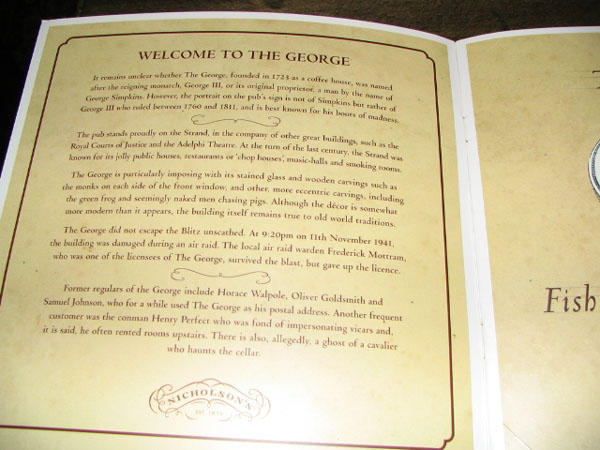 WELCOME TO THE GEORGE
It remains unclear whether The George, founded in 1723 as a coffee house, was named
after the reigning monarch, George III, or its original proprietor, a man by the name of
George Simpkins. However, the portrait on the pub's sign is not of Simpkins but rather of
George III who ruled between 1760 and 1811, and is best known for his bouts of madness.
The pub stands proudly on the Strand, in the company of other great buildings, such as the
Royal Courts of Justice and the Adelphi Theatre. At the turn of the last century, the Strand was
known for its jolly public houses, restaurants or 'chop houses', music-halls and smoking rooms.
The George is particularly imposing with its stained glass and wooden carvings such as
the monks on each side of the front window, and other, more eccentric carvings, including
the green frog and seemingly naked men chasing pigs. Although the décor is somewhat
more modern than it appears, the building itself remains true to old world traditions.
The George did not escape the Blitz unscathed. At 9:20pm on 11th November 1941,
the building was damaged during an air raid. The local air raid warden Frederick Mottram,
who was one of the licensees of The George, survived the blast, but gave up the licence.
Former regulars of the George include Horace Walpole, Oliver Goldsmith and
Samuel Johnson, who for a while used The George as his postal address. Another frequent
customer was the conman Henry Perfect who was fond of impersonating vicars and,
it is said, he often rented rooms upstairs. There is also, allegedly, a ghost of a cavalier
who haunts the cellar.
NICHOLSON'S
EST 1873
Fish